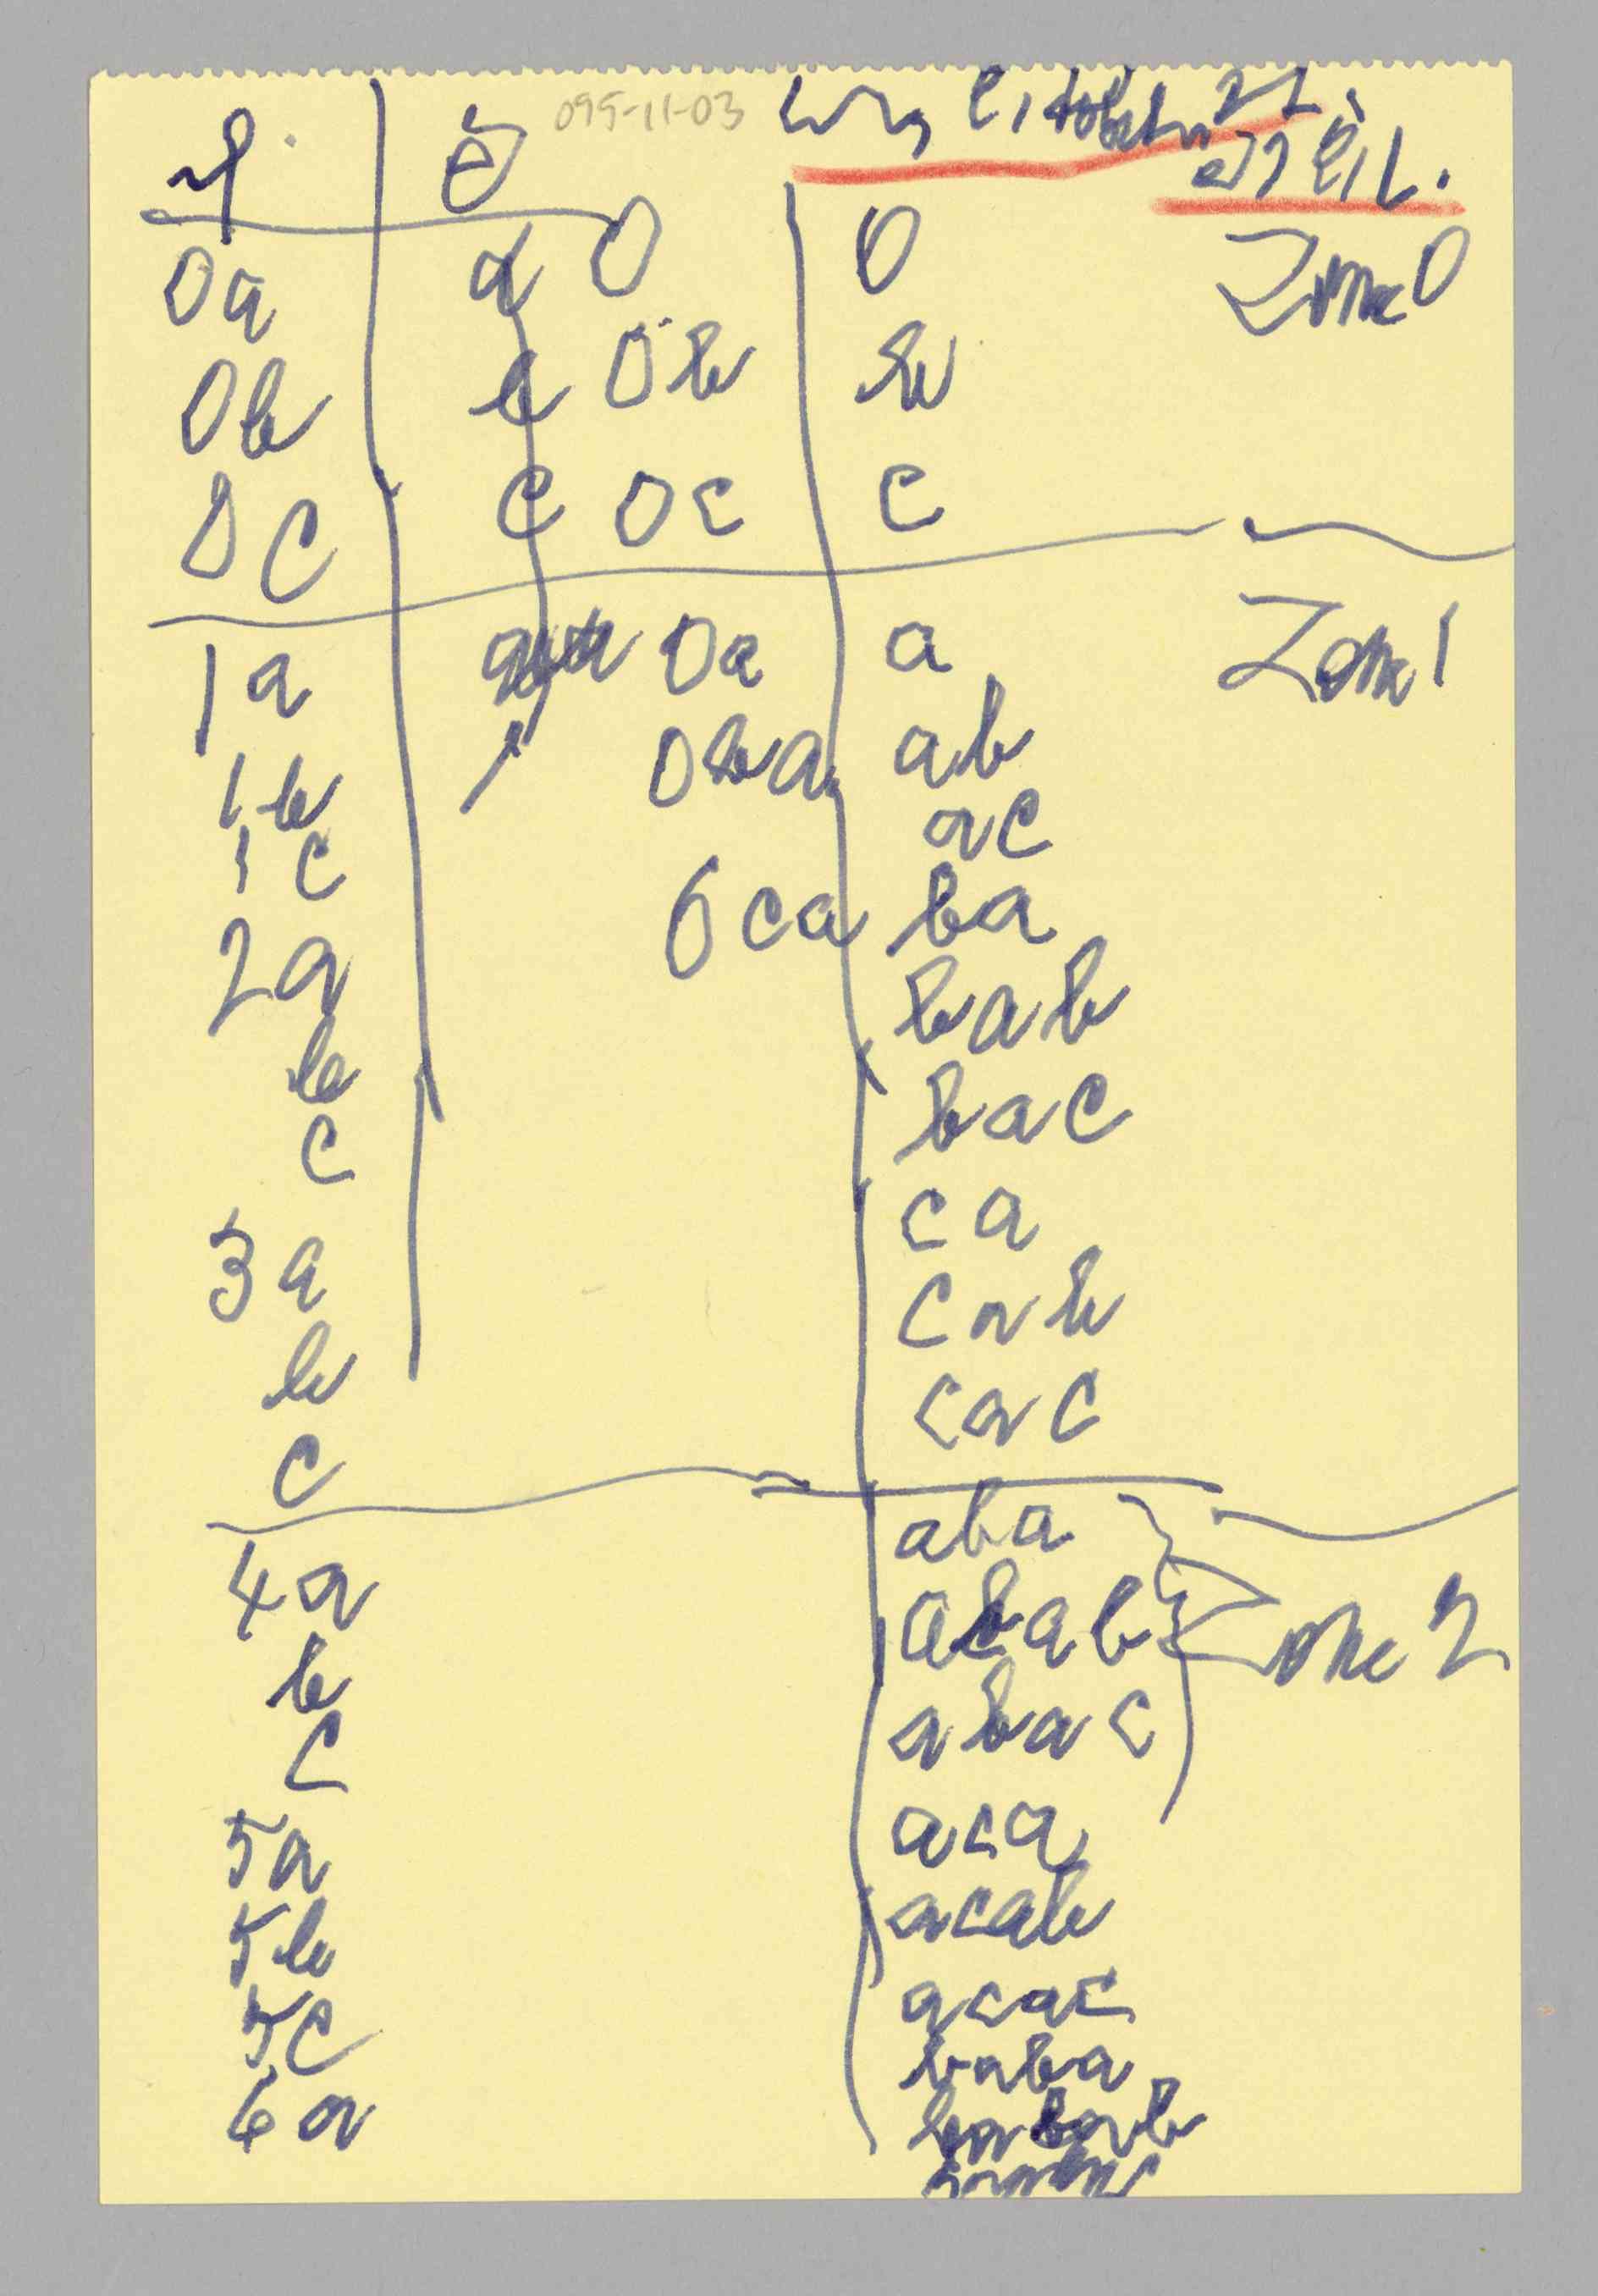 095-11-03
0a a 0 0 Zone 0
0b b 0b b
0c c 0c c
1a 0a a Zone 1
1b 0ba ab
1c ac
2a 0ca ba
b bab
c bac
3a ca
b cab
c cac
4a aba
b abab Zone 2
c abac
5a aca
5b acab
5c acac
6a baba
babab